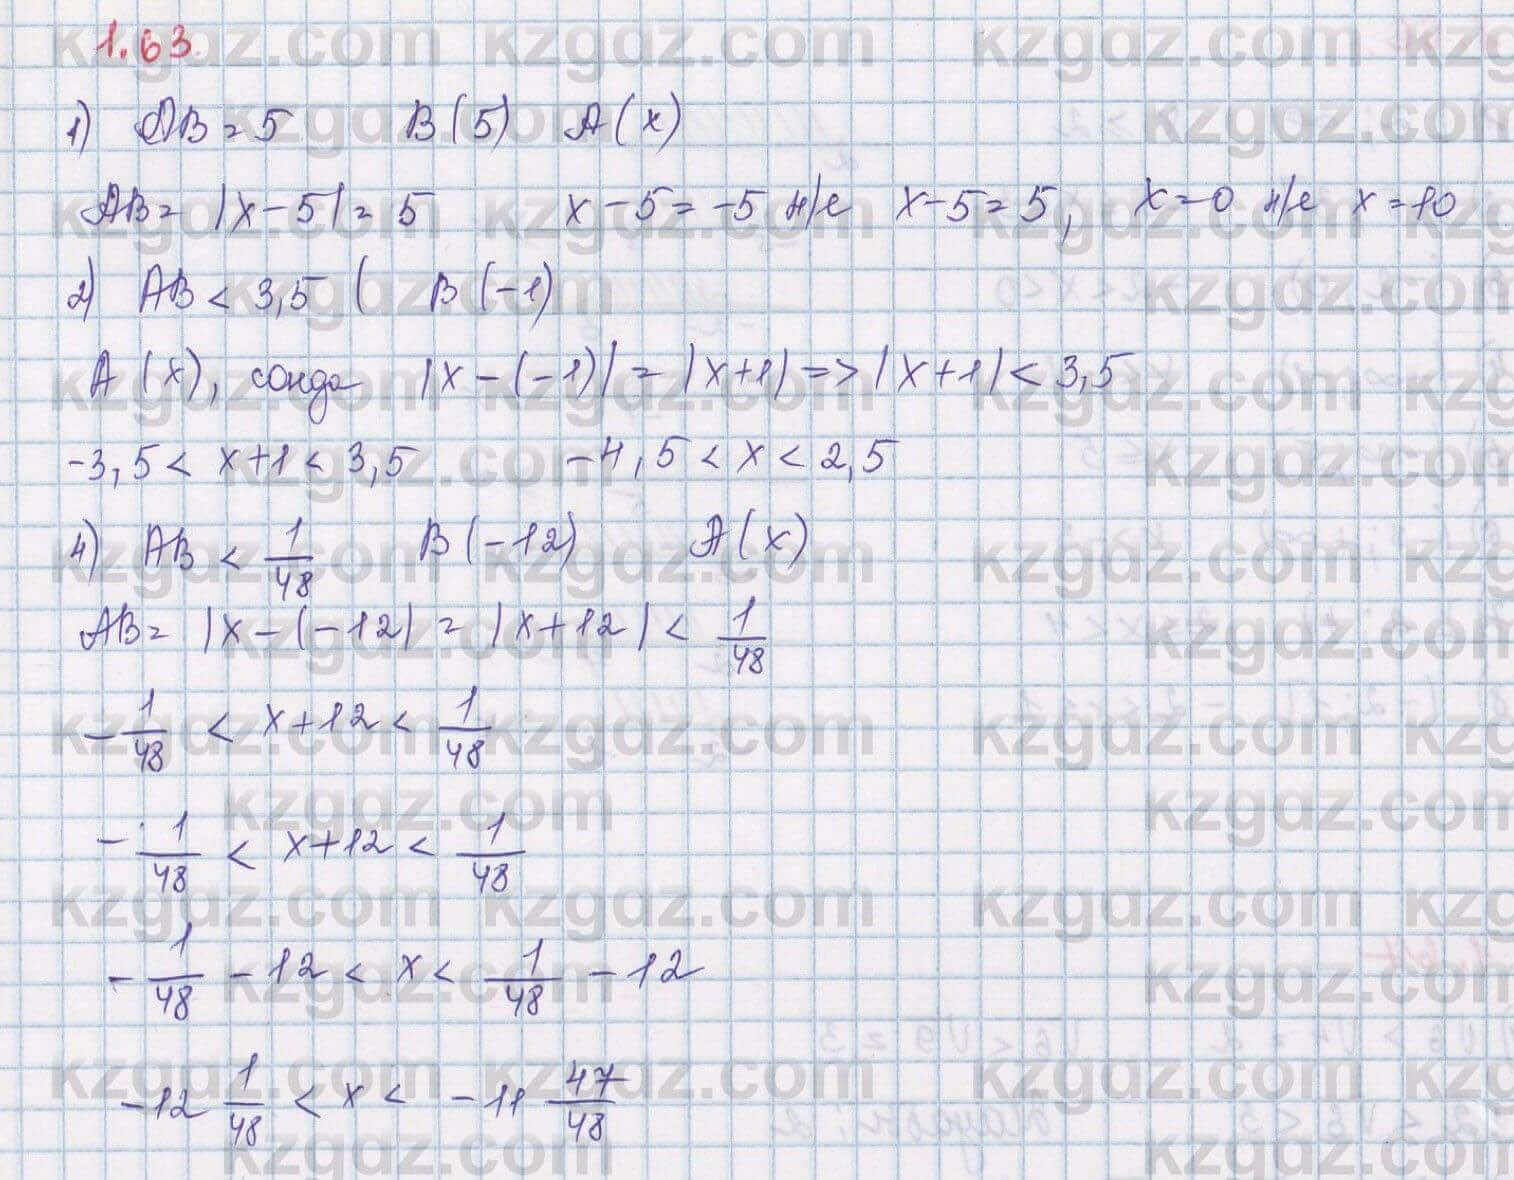 1.63
1) AB = 5 B(5) A(x)
AB = |x-5| = 5 x-5=-5 н/е x-5=5, x=0 н/е x=10
2) AB < 3,5 ( B(-1)
A(x), сонда |x-(-1)| = |x+1| => |x+1| < 3,5
-3,5 < x+1 < 3,5 -4,5 < x < 2,5
4) AB < 1/48 B(-12) A(x)
AB = |x-(-12| = |x+12| < 1/48
-1/48 < x+12 < 1/48
-1/48 < x+12 < 1/48
-1/48 - 12 < x < 1/48 - 12
-12 1/48 < x < -11 47/48
kzgdz.com